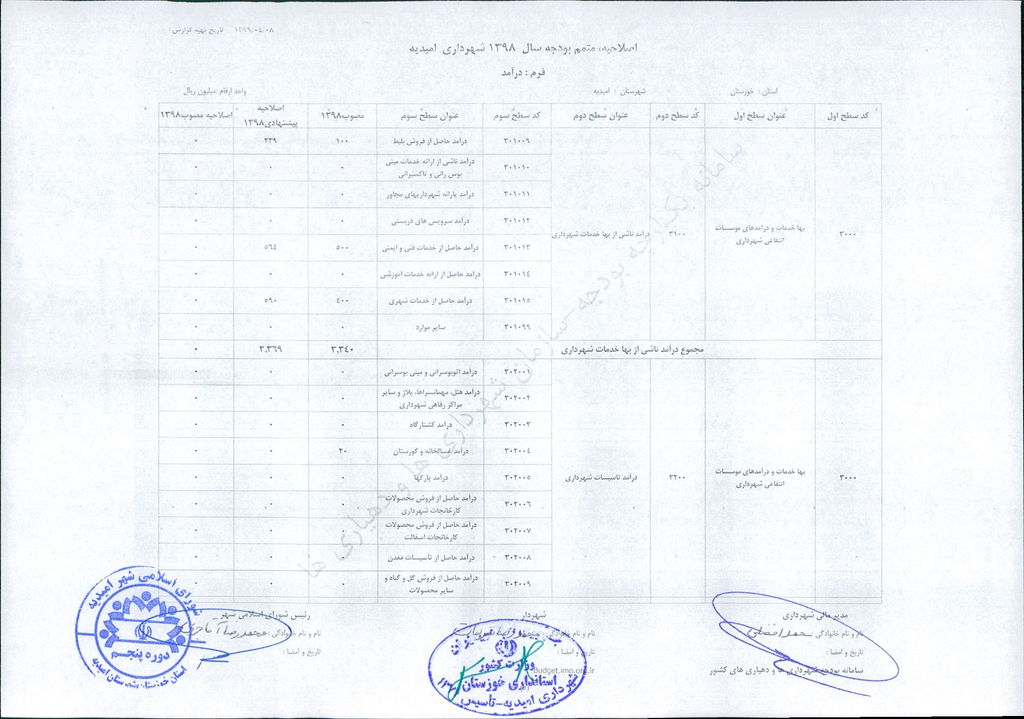 تاریخ تهیه گزارش: ۱۳۹۹/۰۴/۰۸
اصلاحیه، متمم بودجه سال ۱۳۹۸ شهرداری امیدیه
فرم : درآمد
استان : خوزستان شهرستان : امیدیه واحد ارقام :میلیون ریال
کد سطح اول عنوان سطح اول کد سطح دوم عنوان سطح دوم کد سطح سوم عنوان سطح سوم مصوب۱۳۹۸ اصلاحیه پیشنهادی۱۳۹۸ اصلاحیه مصوب۱۳۹۸
۳۰۰۰ بها خدمات و درآمدهای موسسات انتفاعی شهرداری ۳۱۰۰ درآمد ناشی از بها خدمات شهرداری
۳۰۱۰۰۹ درآمد حاصل از فروش بلیط ۱۰۰ ۲۳۹ ۰
۳۰۱۰۱۰ درآمد ناشی از ارائه خدمات مینی
بوس رانی و تاکسیرانی ۰ ۰ ۰
۳۰۱۰۱۱ درآمد یارانه شهرداریهای مجاور ۰ ۰ ۰
۳۰۱۰۱۲ درآمد سرویس های دربستی ۰ ۰ ۰
۳۰۱۰۱۳ درآمد حاصل از خدمات فنی و ایمنی ۵۰۰ ۵٦٤ ۰
۳۰۱۰۱٤ درآمد حاصل از ارائه خدمات آموزشی ۰ ۰ ۰
۳۰۱۰۱۵ درآمد حاصل از خدمات شهری ٤۰۰ ۵۹۰ ۰
۳۰۱۰۹۹ سایر موارد ۰ ۰ ۰
مجموع درآمد ناشی از بها خدمات شهرداری ۳,۳٤۰ ۳,۳٦۹ ۰
۳۰۰۰ بها خدمات و درآمدهای موسسات انتفاعی شهرداری ۳۲۰۰ درآمد تاسیسات شهرداری
۳۰۲۰۰۱ درآمد اتوبوسرانی و مینی بوسرانی ۰ ۰ ۰
۳۰۲۰۰۲ درآمد هتل، مهمانسراها، پلاژ و سایر
مراکز رفاهی شهرداری ۰ ۰ ۰
۳۰۲۰۰۳ درآمد کشتارگاه ۰ ۰ ۰
۳۰۲۰۰٤ درآمد غسالخانه و گورستان ۲۰ ۰ ۰
۳۰۲۰۰۵ درآمد پارکها ۰ ۰ ۰
۳۰۲۰۰٦ درآمد حاصل از فروش محصولات
کارخانجات شهرداری ۰ ۰ ۰
۳۰۲۰۰۷ درآمد حاصل از فروش محصولات
کارخانجات اسفالت ۰ ۰ ۰
۳۰۲۰۰۸ درآمد حاصل از تأسیسات معدن ۰ ۰ ۰
۳۰۲۰۰۹ درآمد حاصل از فروش گل و گیاه و
سایر محصولات ۰ ۰ ۰
سامانه یکپارچه بودجه-سازمان شهرداری ها و دهیاری ها
مدیر مالی شهرداری شهردار رئیس شورای اسلامی شهر
نام و نام خانوادگی : نام و نام خانوادگی : نام و نام خانوادگی : محمدرضا
تاریخ و امضا : تاریخ و امضا : تاریخ و امضا :
سامانه بودجه شهرداری ها و دهیاری های کشور
Budget.imo.org.ir
وزارت کشور
استانداری خوزستان
شهرداری امیدیه-تأسیس
شورای اسلامی شهر امیدیه
دوره پنجم
استان خوزستان-شهرستان امیدیه